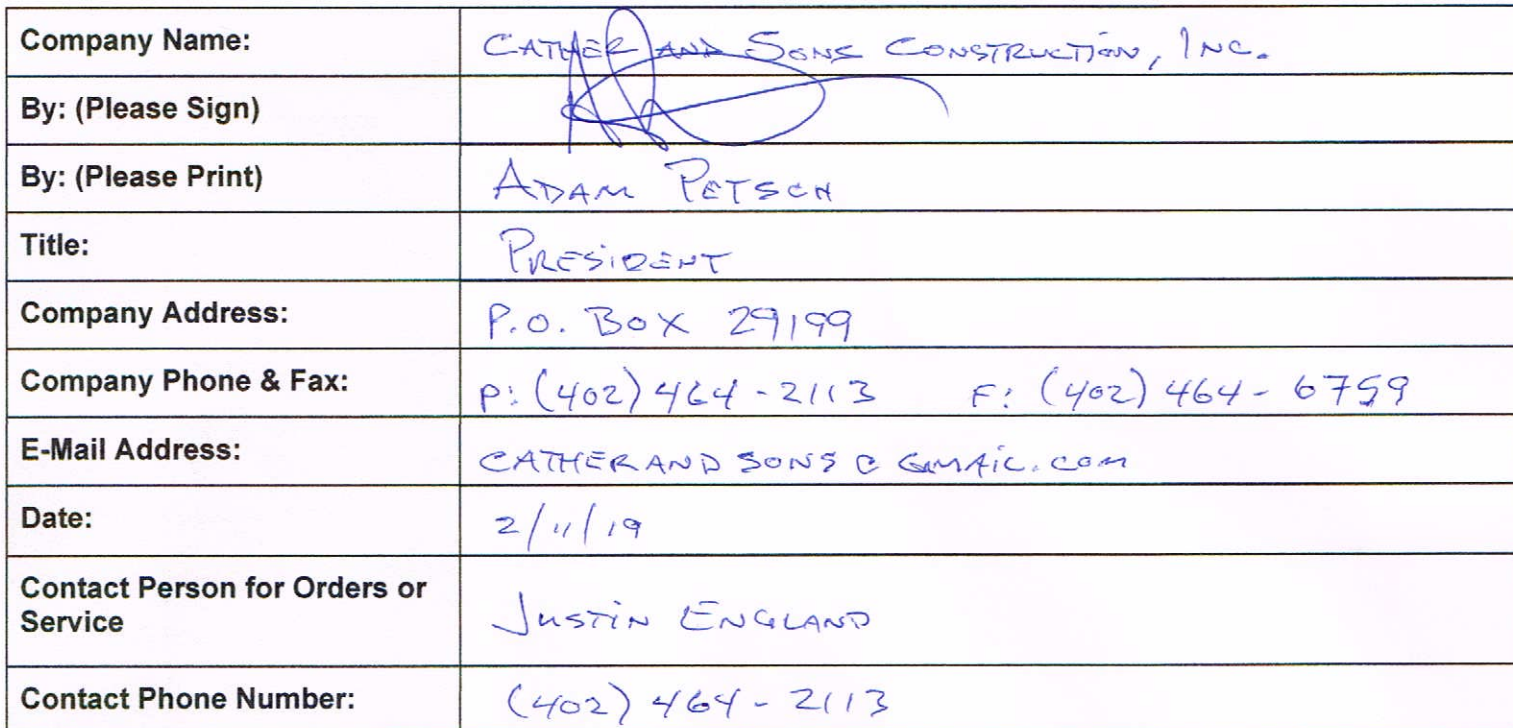 Company Name: CATHER AND SONS CONSTRUCTION, INC.
By: (Please Sign)
By: (Please Print) ADAM PETSCH
Title: PRESIDENT
Company Address: P.O. BOX 29199
Company Phone & Fax: P: (402) 464-2113 F: (402) 464-6759
E-Mail Address: CATHERANDSONS@GMAIL.COM
Date: 2/11/19
Contact Person for Orders or
Service JUSTIN ENGLAND
Contact Phone Number: (402) 464-2113